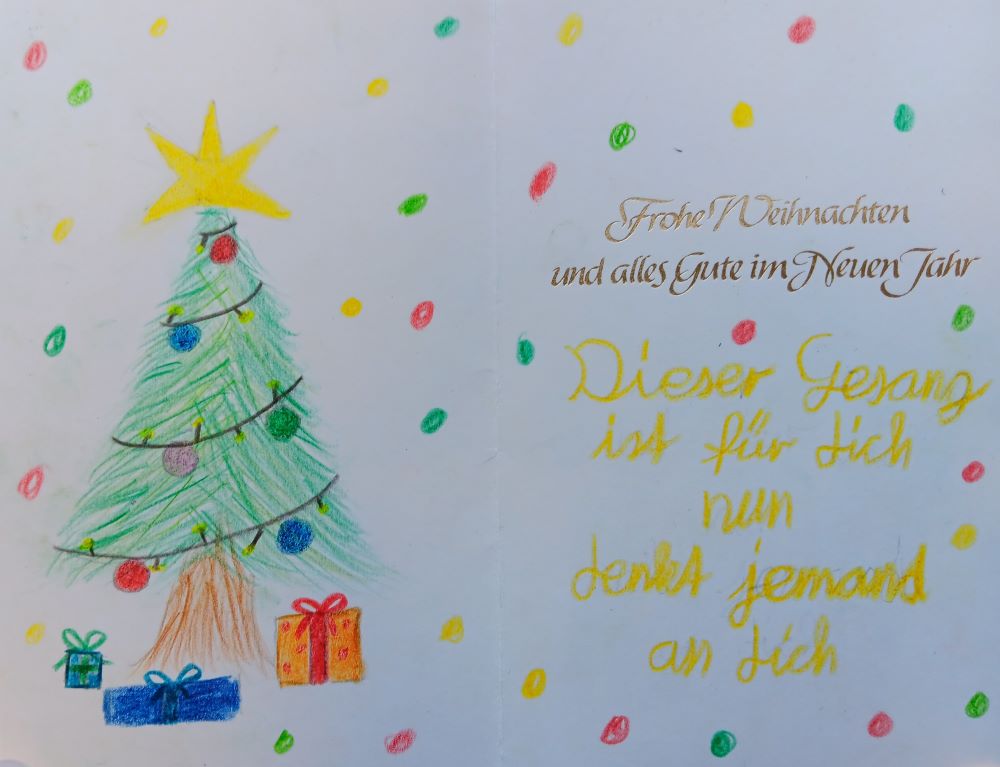 Frohe Weihnachten
und alles Gute im Neuen Jahr
Dieser Gesang
ist für dich
nun
denkt jemand
an dich